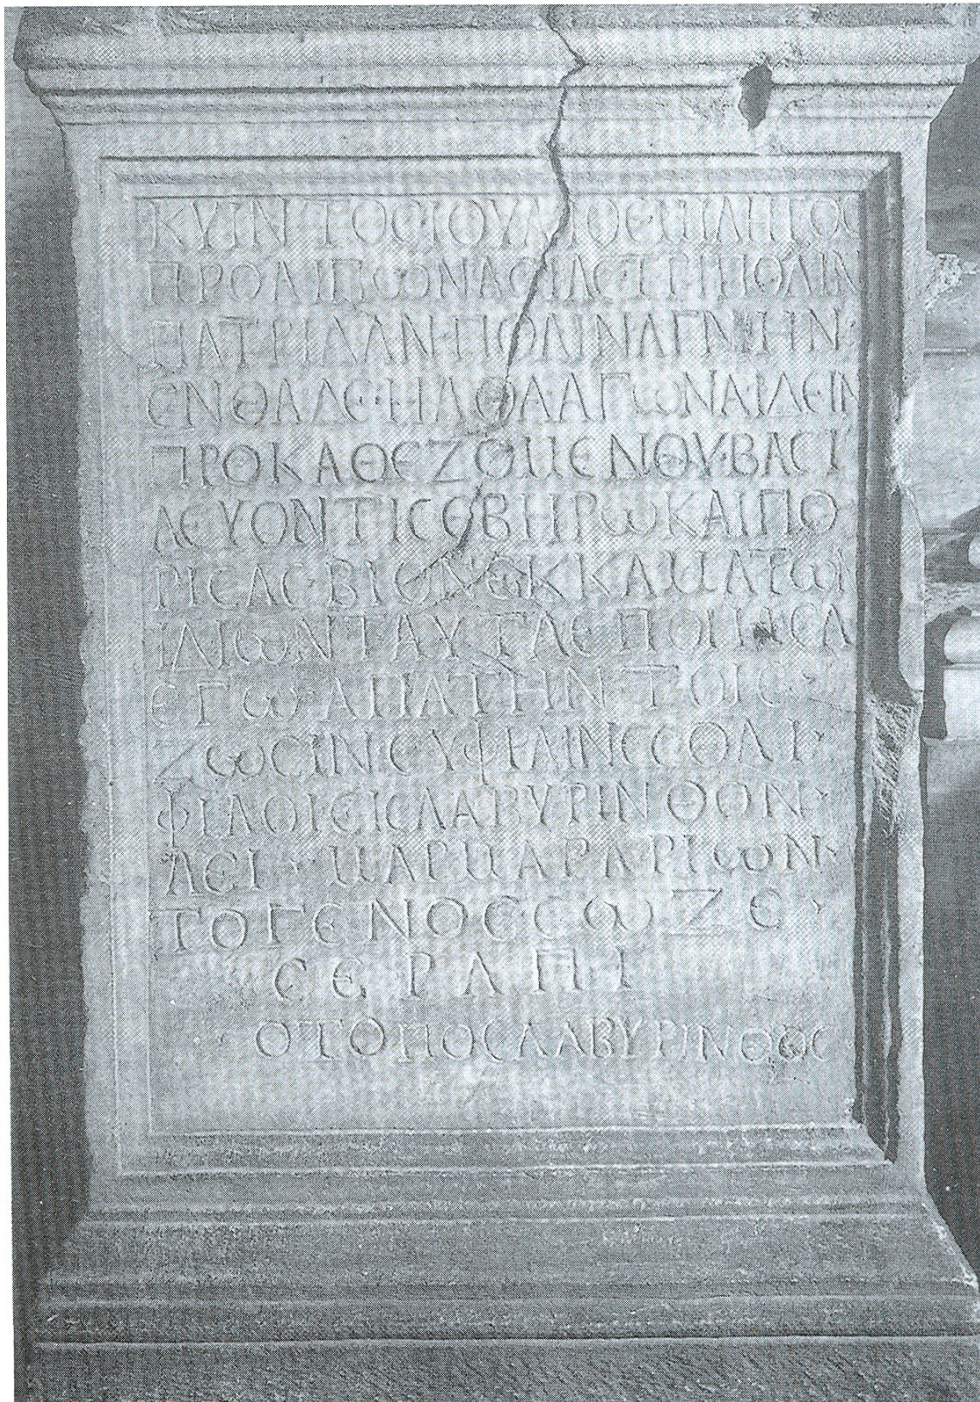 ΚΥΙΝΤΟϹΙΟΥΛΙΟϹΜΙΛΗΤΟϹ
ΠΡΟΛΙΠΩΝΑϹΙΑϹΤΡΙΠΟΛΙΝ
ΠΑΤΡΙΔΑΝ·ΠΟΛΙΝΑΓΝΗΝ·
ΕΝΘΑΔΕ·ΗΛΘΑ·ΑΓΩΝΑ·ΙΔΕΙΝ
ΠΡΟΚΑΘΕΖΟΜΕΝΟΥ·ΒΑϹΙ
ΛΕΥΟΝΤΙϹΕΒΗΡΩΚΑΙΠΟ
ΡΙϹΑϹΒΙΟΝΕΚΚΑΜΑΤΩΝ
ΙΔΙΩΝΤΑΥΤΑΕΠΟΙΗϹΑ
ΕΓΩ·ΑΠΑΤΗΝ·ΤΟΙϹ·
ΖΩϹΙΝΕΥΦΡΑΙΝΕϹΘΑΙ·
ΦΙΛΟΙΕΙϹΛΑΒΥΡΙΝΘΟΝ·
ΑΕΙ·ΜΑΡΜΑΡΑΡΙΩΝ·
ΤΟΓΕΝΟϹϹΩΖΕ·
ϹΕΡΑΠΙ
ΟΤΟΠΟϹΛΑΒΥΡΙΝΘΟϹ